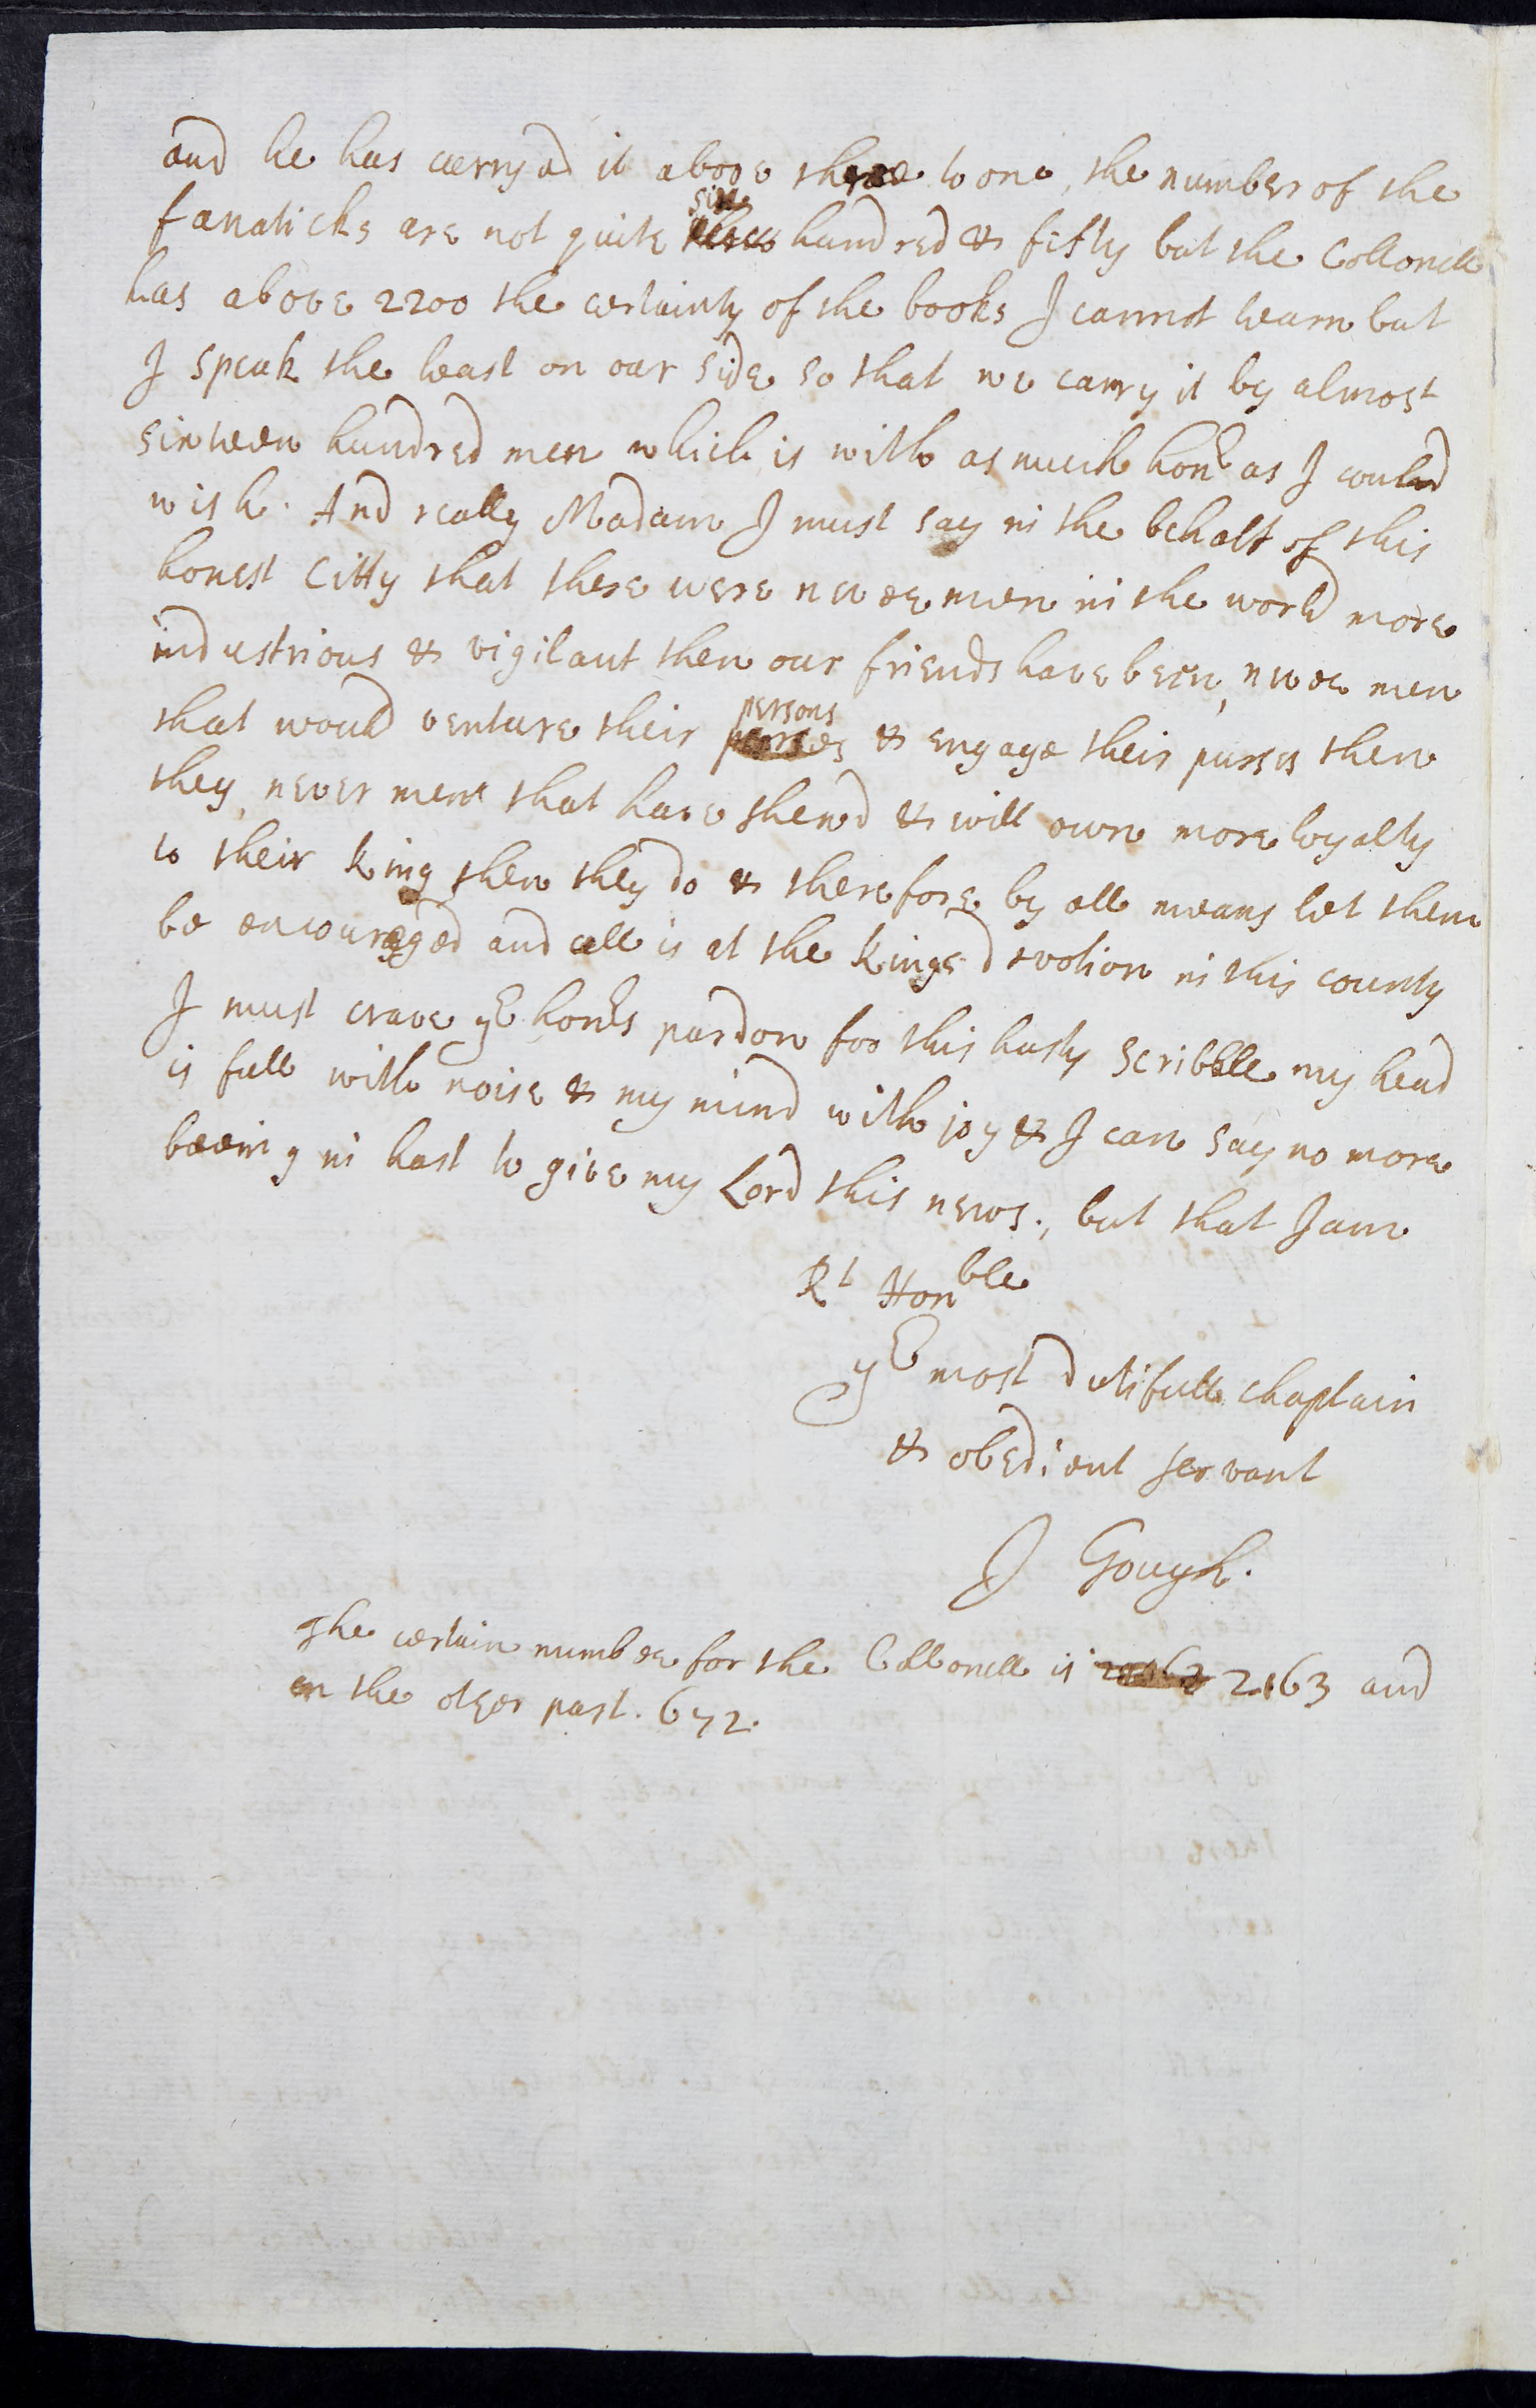 and he has carryed it above three to one, the number of the
fanaticks are not quite six hundred & fifty but the Collonell
has above 2200 the certainty of the books I cannot learn but
I speak the least on our side so that we carry it by almost
sixteen hundred men which is with as much honr as I could
wish. And really Madam I must say in the behalf of this
honest Citty that there were never men in the world more
industrious & vigilant then our friends have been, never men
that would venture their persons & engage their purses then
they, never men that have shewd & will own more loyalty
to their king then they do & therefore by all means let them
be encouraged and all is at the kings devotion in this county
I must crave yr honrs pardon for this hasty scribble my head
is full with noise & my mind with joy & I can say no more
beeing in hast to give my Lord this news., but that I am
Rt Honble
yr most dutifull chaplain
& obedient servant
J Gough.
The certain number for the Collonell is 2163 and
on the other part. 672.